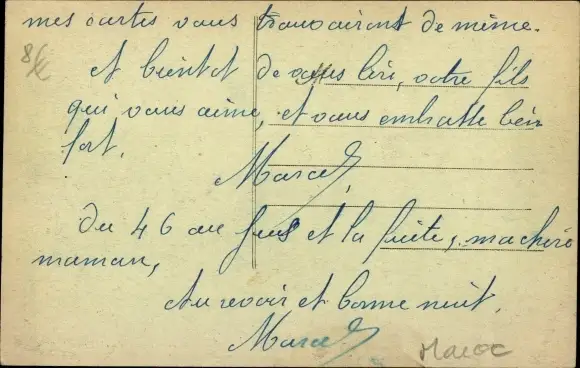 mes cartes vous trouveront de même.
et bientot de vous lire, votre fils
qui vous aime, et vous embrasse bien
fort.
Marcel
Du 46 au jus et la fuite, ma chère
maman,
Au revoir et bonne nuit.
Marcel
Maroc